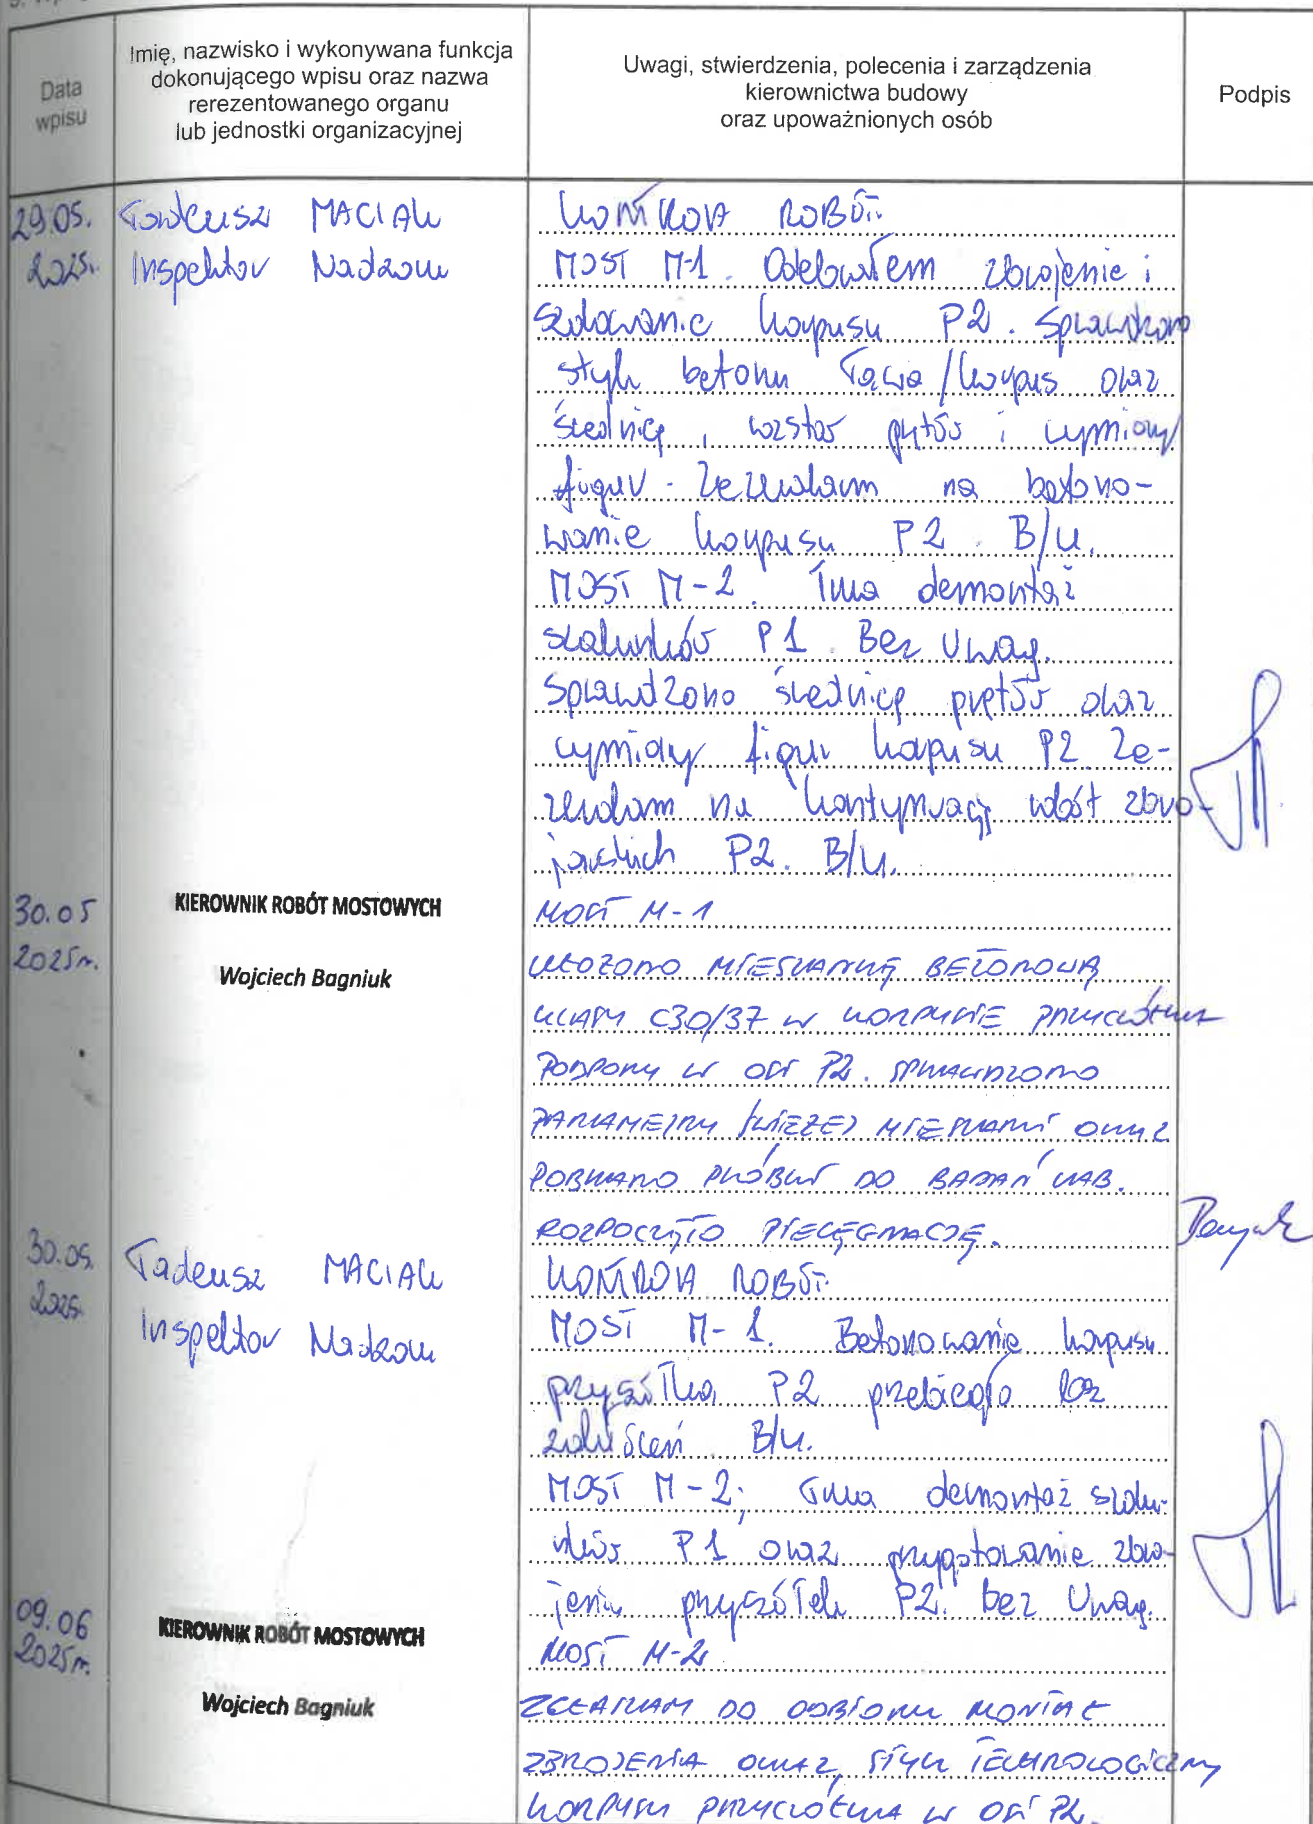 Data
wpisu
Imię, nazwisko i wykonywana funkcja
dokonującego wpisu oraz nazwa
rerezentowanego organu
lub jednostki organizacyjnej
Uwagi, stwierdzenia, polecenia i zarządzenia
kierownictwa budowy
oraz upoważnionych osób
Podpis
29.05.
2025r.
Tadeusz MACIAK
Inspektor Nadzoru
KONTROLA ROBÓT.
MOST M-1. Odebrałem zbrojenie i
szalowanie korpusu P2. Sprawdzono
styk betonu ława/korpus oraz
średnicę, rozstaw prętów i wymiary
figur. Zezwalam na betono-
wanie korpusu P2. B/U.
MOST M-2. Trwa demontaż
szalunków P1. Bez Uwag.
Sprawdzono średnicę prętów oraz
wymiary figur korpusu P2. Ze-
zwalam na kontynuację robót zbro-
jarskich P2. B/U.
30.05
2025r.
KIEROWNIK ROBÓT MOSTOWYCH
Wojciech Bagniuk
MOST M-1
UŁOŻONO MIESZANKĘ BETONOWĄ
KLASY C30/37 W KORPUSIE PRZYCZÓŁKA
PODPORY W OSI P2. SPRAWDZONO
PARAMETRY ŚWIEŻEJ MIESZANKI ORAZ
POBRANO PRÓBKI DO BADAŃ LAB.
ROZPOCZĘTO PIELĘGNACJĘ.
30.05.
2025.
Tadeusz MACIAK
Inspektor Nadzoru
KONTROLA ROBÓT.
MOST M-1. Betonowanie korpusu
przyczółka P2 przebiegło bez
zakłóceń. B/U.
MOST M-2; Trwa demontaż szalu-
nków P1 oraz przygotowanie zbro-
jenia przyczółek P2. bez Uwag.
09.06
2025r.
KIEROWNIK ROBÓT MOSTOWYCH
Wojciech Bagniuk
MOST M-2
ZGŁASZAM DO ODBIORU MONTAŻ
ZBROJENIA ORAZ STYK TECHNOLOGICZNY
KORPUSU PRZYCZÓŁKA W OSI P2.